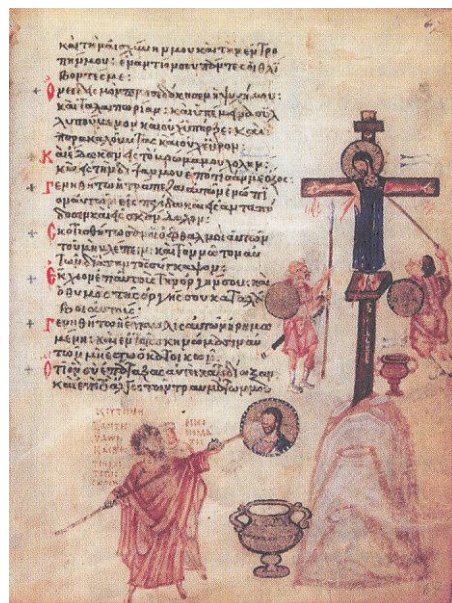 καὶ τὴν αἰσχύνην μου καὶ τὴν ἐντρο
πήν μου· ἐναντίον σου πάντες οἱ θλί
βοντές με:
Ὀνειδισμὸν προσεδόκησεν ἡ ψυχή μου:
καὶ ταλαιπωρίαν: καὶ ὑπέμεινα συλ
λυπούμενον καὶ οὐχ ὑπῆρξε: καὶ πα
ρακαλοῦντας καὶ οὐχ εὗρον:
Καὶ ἔδωκαν εἰς τὸ βρῶμά μου χολήν:
καὶ εἰς τὴν δίψαν μου ἐπότισάν με ὄξος:
Γενηθήτω ἡ τράπεζα αὐτῶν ἐνώπι
ον αὐτῶν εἰς παγίδα καὶ εἰς ἀνταπό
δοσιν καὶ εἰς σκάνδαλον:
Σκοτισθήτωσαν οἱ ὀφθαλμοὶ αὐτῶν
τοῦ μὴ βλέπειν: καὶ τὸν νῶτον αὐ
τῶν διὰ παντὸς σύγκαμψον:
Ἔκχεον ἐπ' αὐτοὺς τὴν ὀργήν σου: καὶ
ὁ θυμὸς τῆς ὀργῆς σου καταλά
βοι αὐτούς:
Γενηθήτω ἡ ἔπαυλις αὐτῶν ἠρημω
μένη: καὶ ἐν τοῖς σκηνώμασιν αὐ
τῶν μὴ ἔστω ὁ κατοικῶν:
Ὅτι ὃν σὺ ἐπάταξας αὐτοὶ κατεδίωξαν
καὶ ἐπὶ τὸ ἄλγος τῶν τραυμάτων μου